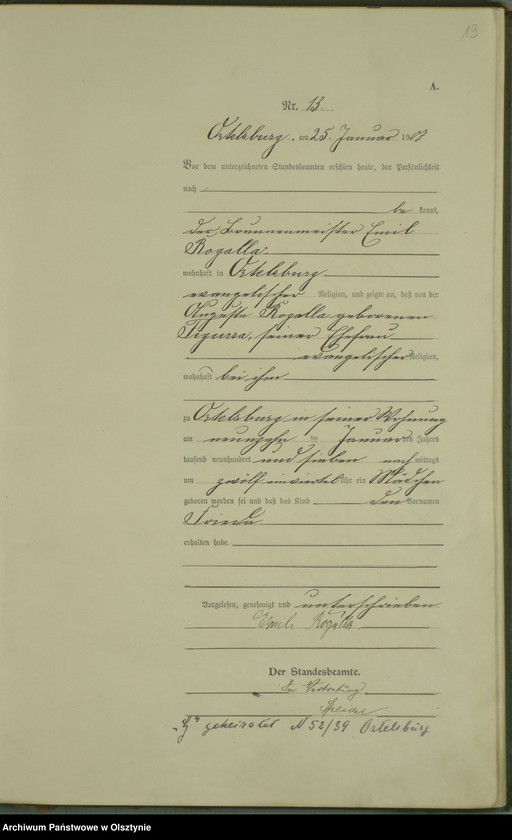 13
A.
Nr. 13.
Ortelsburg, am 25. Januar 1907
Vor dem unterzeichneten Standesbeamten erschien heute, der Persönlichkeit
nach
be kannt,
der Brunnenmeister Emil
Rogalla
wohnhaft in Ortelsburg
evangelischer Religion, und zeigte an, daß von der
Auguste Rogalla geborenen
seiner Ehefrau
evangelischer Religion,
wohnhaft bei ihm
zu Ortelsburg in seiner Wohnung
am neunzehn ten Januar des Jahres
tausend neunhundert und sieben nach mittags
um zwölf einviertel Uhr ein Mädchen
geboren worden sei und daß das Kind den Vornamen
Frieda
erhalten habe.
Vorgelesen, genehmigt und unterschrieben
Emil Rogalla
Der Standesbeamte.
In Vertretung
geheiratet N 52/39 Ortelsburg
Archiwum Państwowe w Olsztynie